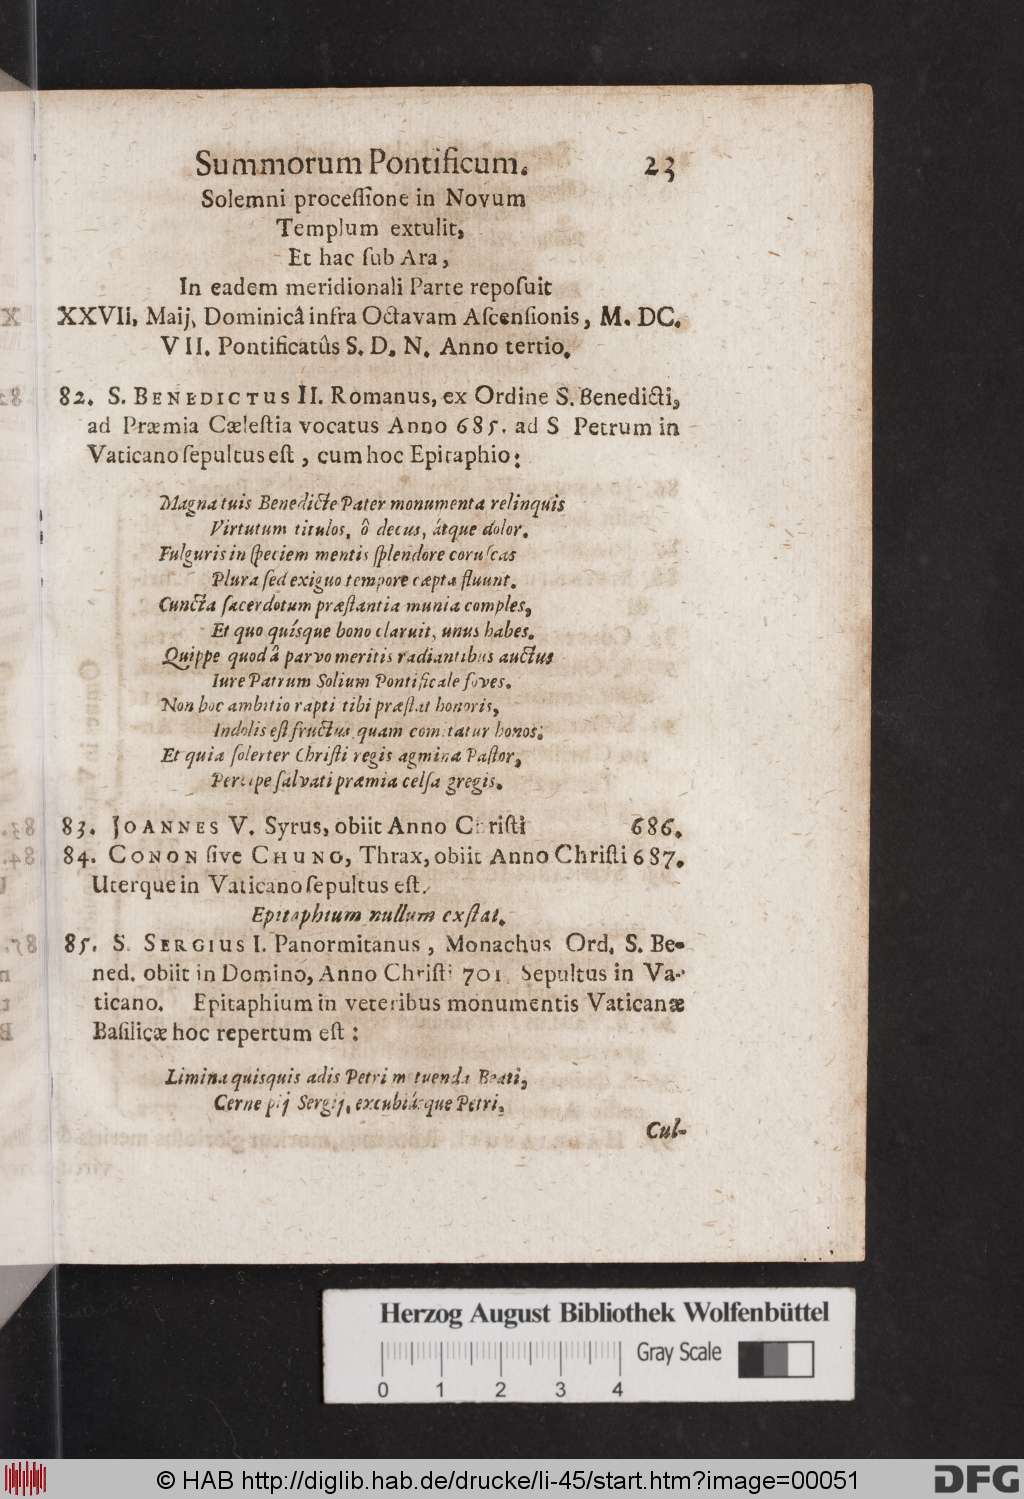 Summorum Pontificum. 23
Solemni proceſſione in Novum
Templum extulit,
Et hac ſub Ara,
In eadem meridionali Parte repoſuit
XXVII. Maij, Dominicâ infra Octavam Aſcenſionis, M. DC.
VII. Pontificatûs S. D. N. Anno tertio.
82. S. BENEDICTUS II. Romanus, ex Ordine S. Benedicti,
ad Præmia Cæleſtia vocatus Anno 685. ad S Petrum in
Vaticano ſepultus eſt, cum hoc Epitaphio:
Magna tuis Benedicte Pater monumenta relinquis
Virtutum titulos, ô decus, átque dolor.
Fulguris in ſpeciem mentis ſplendore coruſcas
Plura ſed exiguo tempore cæpta fluunt.
Cuncta ſacerdotum præſtantia munia comples,
Et quo quísque bono claruit, unus habes.
Quippe quod â parvo meritis radiantibus auctus
Iure Patrum Solium Pontificale foves.
Non hoc ambitio rapti tibi præſtat honoris,
Indolis eſt fructus quam comitatur honos:
Et quia ſolerter Chriſti regis agmina Paſtor,
Percipe ſalvati præmia celſa gregis.
83. JOANNES V. Syrus, obiit Anno Chriſti 686.
84. CONON ſive CHUNO, Thrax, obiit Anno Chriſti 687.
Uterque in Vaticano ſepultus eſt.
Epitaphium nullum exſtat.
85. S. SERGIUS I. Panormitanus, Monachus Ord. S. Be-
ned. obiit in Domino, Anno Chriſti 701. Sepultus in Va-
ticano. Epitaphium in veteribus monumentis Vaticanæ
Baſilicæ hoc repertum eſt:
Limina quisquis adis Petri metuenda Beati,
Cerne pij Sergij, excubiásque Petri,
Cul-
Herzog August Bibliothek Wolfenbüttel
Gray Scale
0 1 2 3 4
© HAB http://diglib.hab.de/drucke/li-45/start.htm?image=00051
DFG